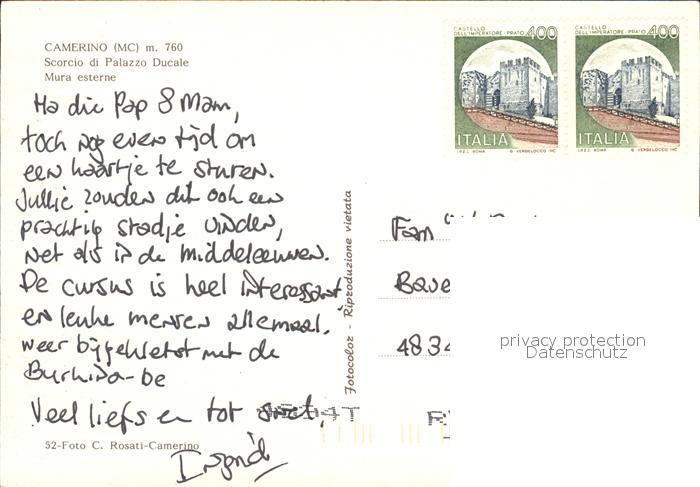 CAMERINO (MC) m. 760
Scorcio di Palazzo Ducale
Mura esterne
CASTELLO DELL'IMPERATORE - PRATO 400
ITALIA
I.P.Z.S. ROMA
CASTELLO DELL'IMPERATORE - PRATO 400
ITALIA
I.P.Z.S. ROMA
Ha die Pap & Mam,
toch nog even tijd om
een kaartje te sturen.
Jullie zouden dit ook een
prachtig stadje vinden,
net als in de middeleeuwen.
De cursus is heel interessant
en leuke mensen allemaal.
weer bijgekletst met de
Veel liefs en tot snel,
Ingrid
Fotocolor - Riproduzione vietata
Fam
Bove
4834
privacy protection
Datenschutz
52-Foto C. Rosati-Camerino